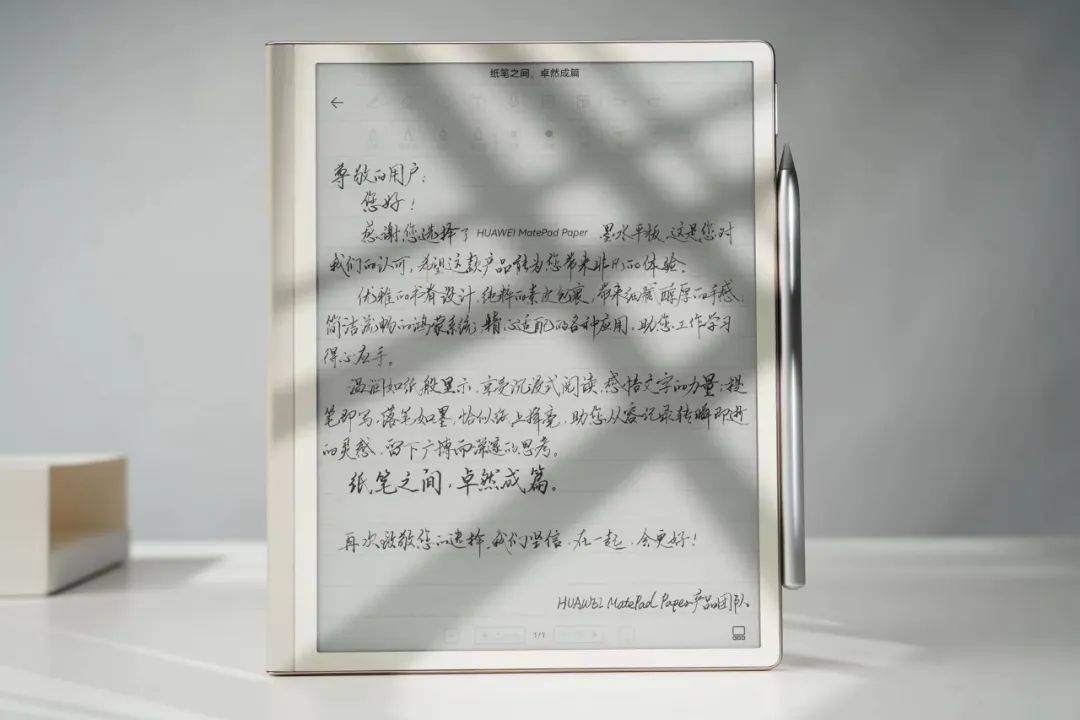 纸笔之间，卓然成篇
尊敬的用户：
您好！
感谢您选择了 HUAWEI MatePad Paper 墨水平板，这是您对
我们的认可，希望这款产品能为您带来非凡的体验。
优雅的书脊设计，纯粹的素皮包裹，带来细腻醇厚的手感，
简洁流畅的鸿蒙系统，精心适配的各种应用，助您工作学习
得心应手。
温润如纸般显示，享受沉浸式阅读，感悟文字的力量；提
笔即写，落笔如墨，恰似纸上挥毫，助您从容记录转瞬即逝
的灵感，留下广博而深邃的思考。
纸笔之间，卓然成篇。
再次致敬您的选择，我们坚信，在一起，会更好！
HUAWEI MatePad Paper产品团队
1/1